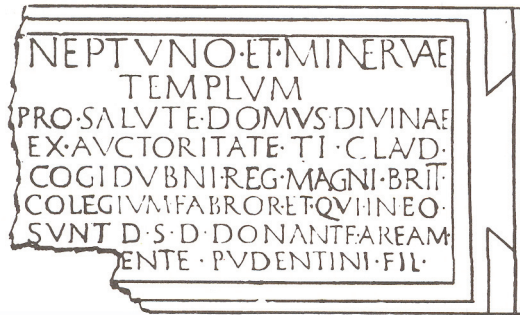 NEPTVNO·ET·MINERVAE
TEMPLVM
PRO·SALVTE·DOMVS·DIVINAE
EX·AVCTORITATE·TI·CLAVD·
COGIDVBNI·REG·MAGNI·BRIT
COLEGIVM FABROR·ET·QVI·IN·EO·
SVNT D·S·D·DONANTE·AREAM
ENTE·PVDENTINI·FIL·